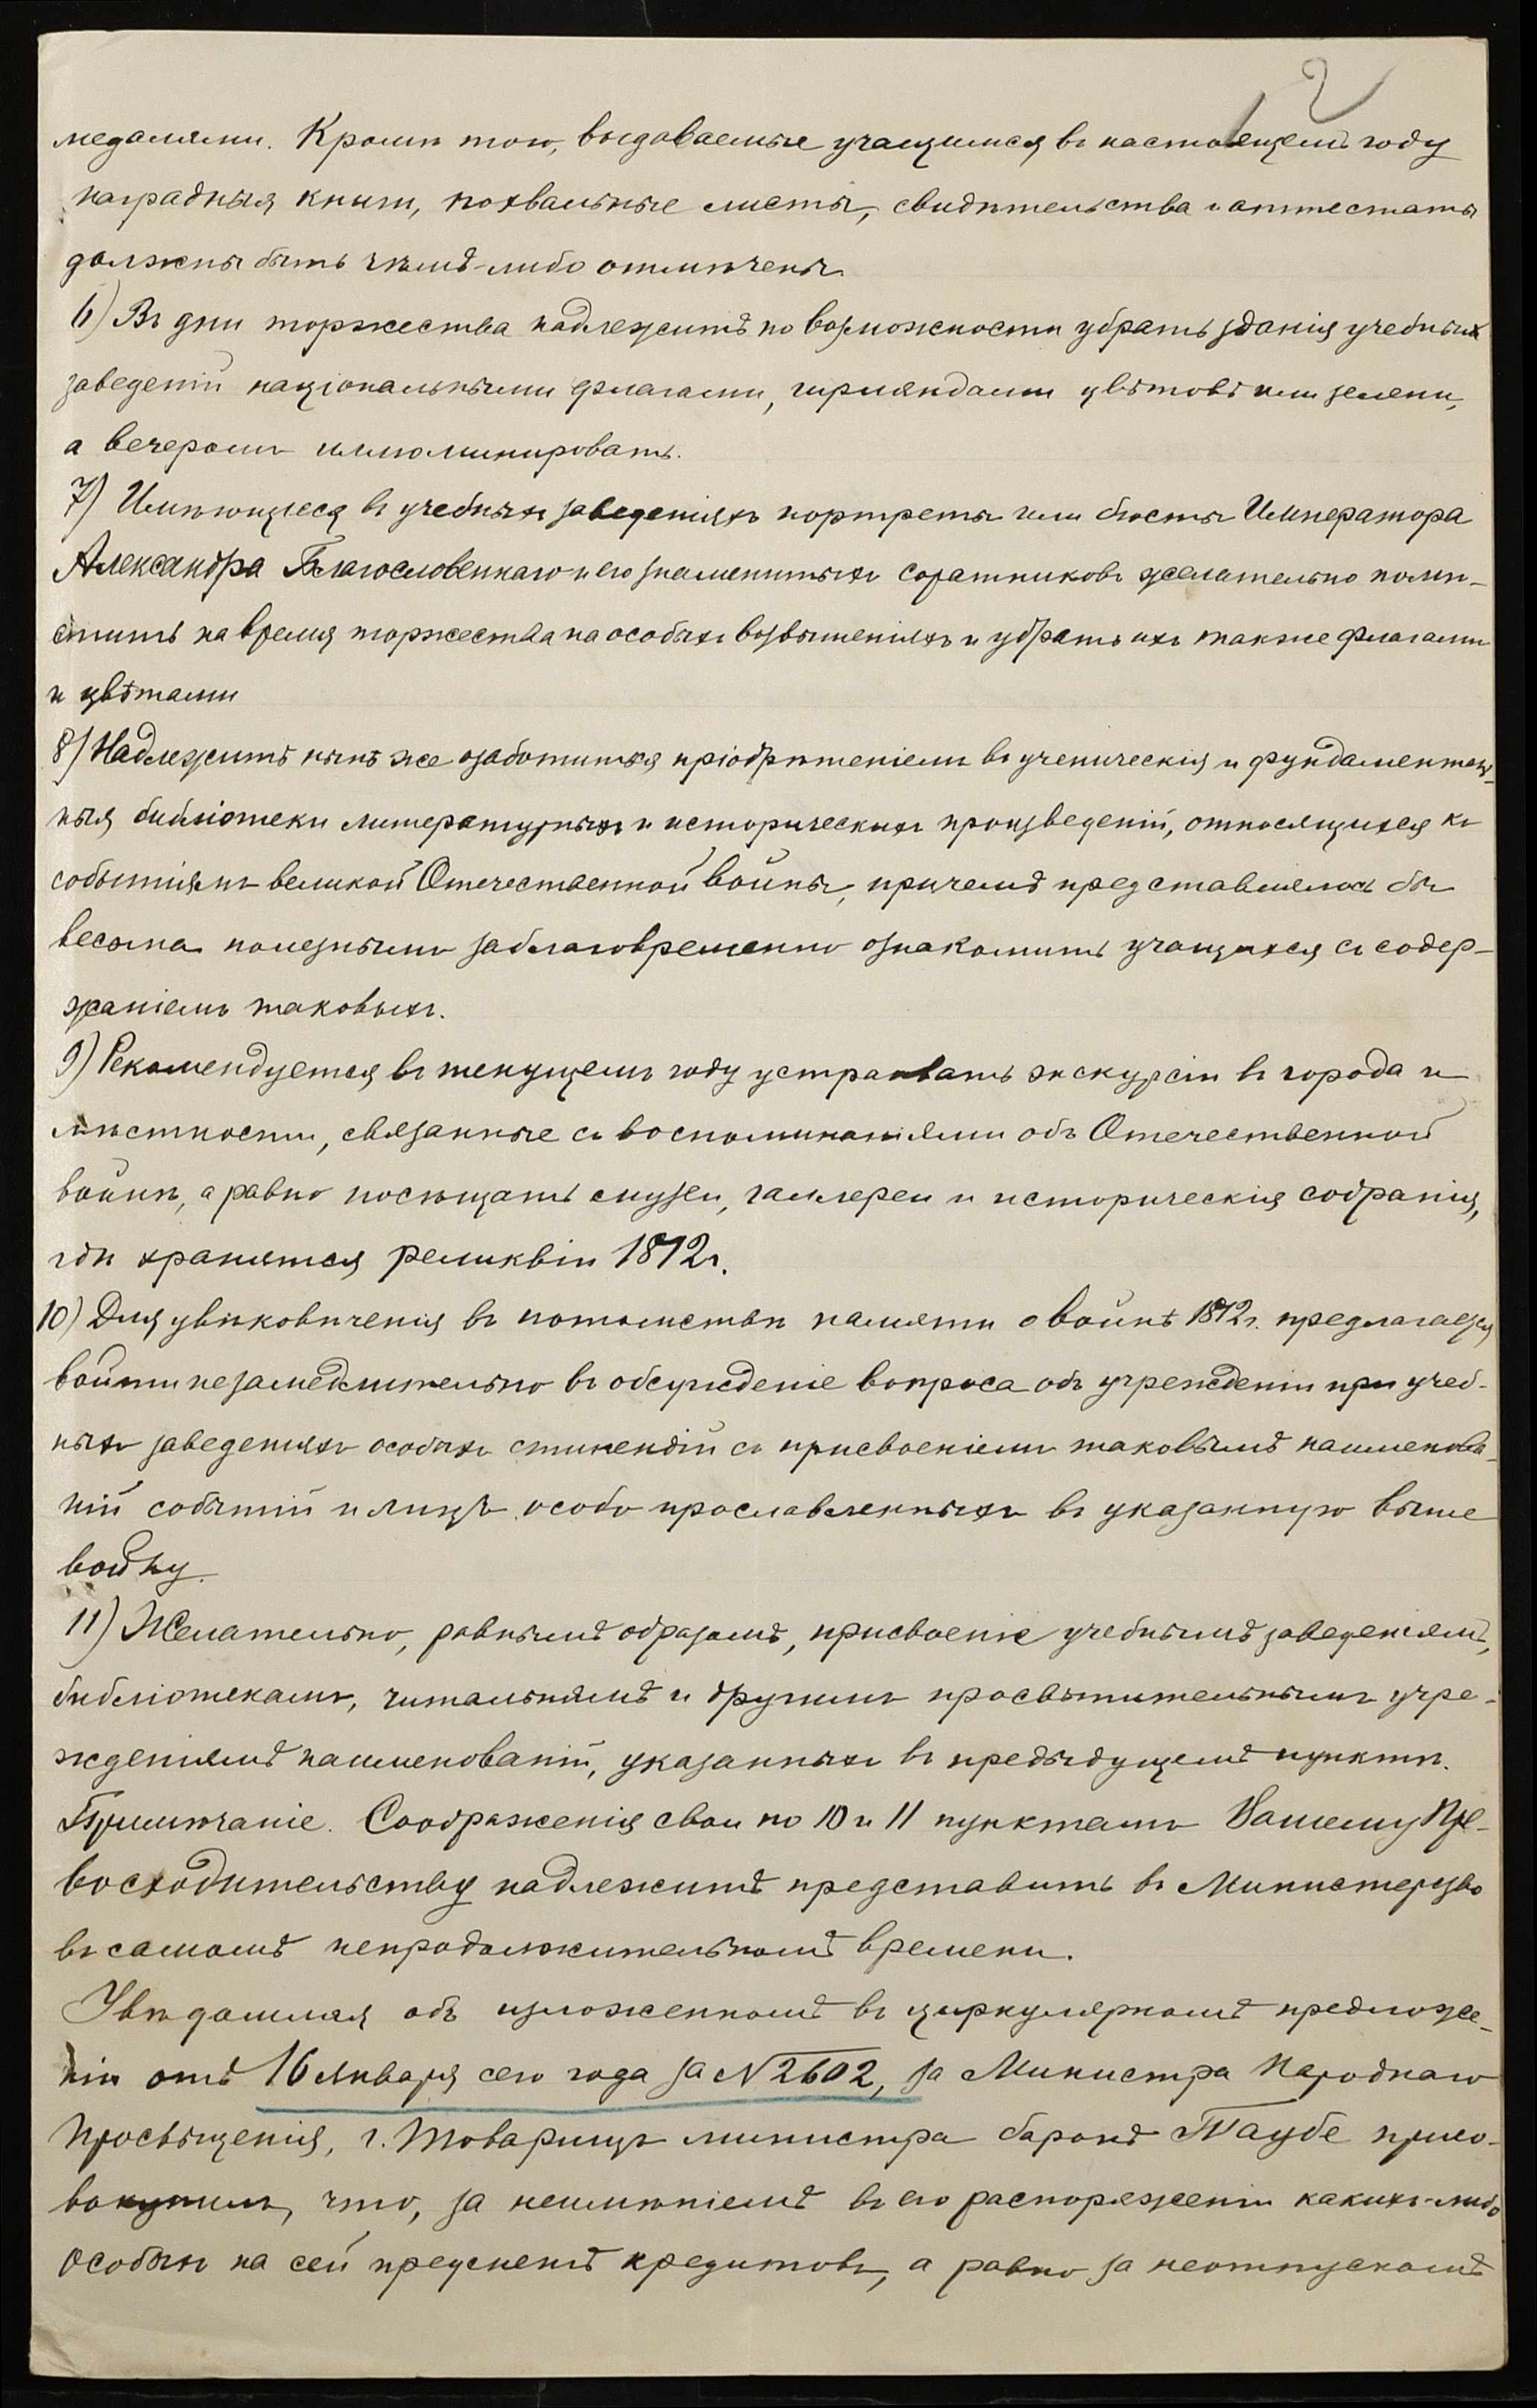 2
медалями. Кромѣ того, выдаваемые учащимся въ настоящемъ году
наградныя книги, похвальные листы, свидѣтельства и аттестаты
должны быть чѣмъ-либо отмѣчены
6) Въ дни торжества надлежитъ по возможности убрать зданія учебныхъ
заведеній національными флагами, гирляндами цвѣтовъ или зелени,
а вечеромъ иллюминировать.
7) Имѣющіеся въ учебныхъ заведеніяхъ портреты или бюсты Императора
Александра Благословеннаго и его знаменитыхъ соратниковъ желательно помѣ-
стить на время торжества на особыхъ возвышеніяхъ и убрать ихъ также флагами
и цвѣтами
8) Надлежитъ нынѣ же озаботиться пріобрѣтеніемъ въ ученическія и фундаменталь-
ныя библіотеки литературныхъ и историческихъ произведеній, относящихся къ
событіямъ великой Отечественной войны, причемъ представлялось бы
весьма полезнымъ заблаговременно ознакомить учащихся съ содер-
жаніемъ таковыхъ.
9) Рекомендуется въ текущемъ году устраивать экскурсіи въ города и
мѣстности, связанные съ воспоминаніями объ Отечественной
войнѣ, а равно посѣщать музеи, галлереи и историческія собранія,
гдѣ хранятся реликвіи 1812 г.
10) Для увѣковѣченія въ потомствѣ памяти о войнѣ 1812 г. предлагается
войти незамедлительно въ обсужденіе вопроса объ учрежденіи при учеб-
ныхъ заведеніяхъ особыхъ стипендій съ присвоеніемъ таковымъ наименова-
ній событій и лицъ особо прославленныхъ въ указанную выше
войну.
11) Желательно, равнымъ образомъ, присвоеніе учебнымъ заведеніямъ,
библіотекамъ, читальнямъ и другимъ просвѣтительнымъ учре-
жденіямъ наименованій, указанныхъ въ предыдущемъ пунктѣ.
Примѣчаніе. Соображенія свои по 10 и 11 пунктамъ Вашему Пре-
восходительству надлежитъ представить въ Министерство
въ самомъ непродолжительномъ времени.
Увѣдомляя объ изложенномъ въ циркулярномъ предложе-
ніи отъ 16 Января сего года за № 2602, за Министра Народнаго
Просвѣщенія, г. Товарищъ министра баронъ Таубе присо-
вокупилъ, что, за неимѣніемъ въ его распоряженіи какихъ-либо
особыхъ на сей предметъ кредитовъ, а равно за неотпускомъ